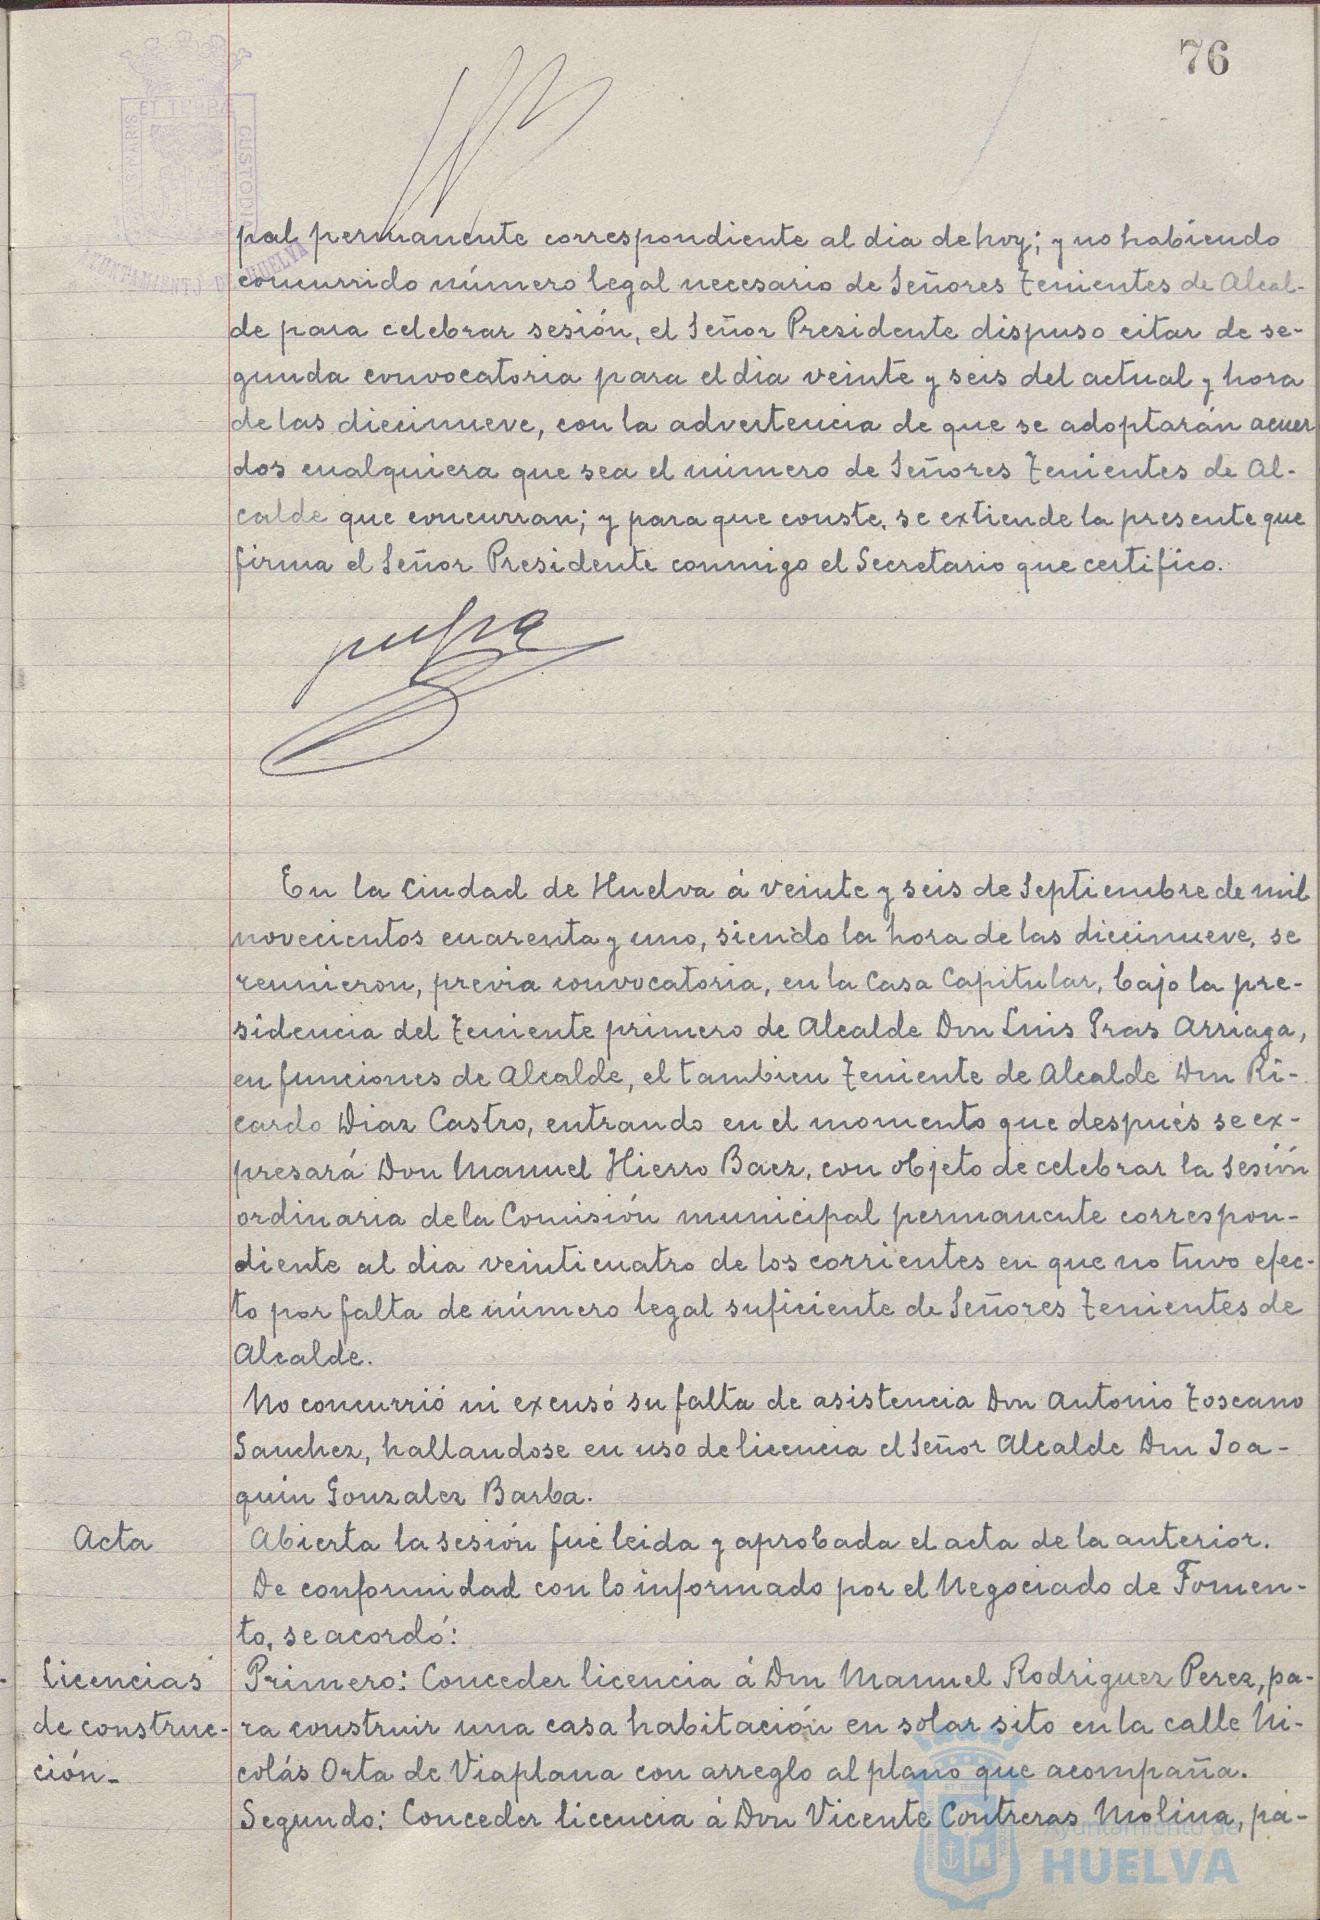 76
ET TERRÆ
CUSTODIA
AYUNTAMIENTO DE HUELVA
pal permanente correspondiente al dia de hoy; y no habiendo
concurrido número legal necesario de Señores Tenientes de Alcal-
de para celebrar sesión, el Señor Presidente dispuso citar de se-
gunda convocatoria para el dia veinte y seis del actual y hora
de las diecinueve, con la advertencia de que se adoptarán acuer
dos cualquiera que sea el número de Señores Tenientes de Al-
calde que concurran; y para que conste, se extiende la presente que
firma el Señor Presidente conmigo el Secretario que certifico.
En la Ciudad de Huelva á veinte y seis de Septiembre de mil
novecientos cuarenta y uno, siendo la hora de las diecinueve, se
reunieron, previa convocatoria, en la Casa Capitular, bajo la pre-
sidencia del Teniente primero de Alcalde Don Luis Pras Arriaga,
en funciones de Alcalde, el tambien Teniente de Alcalde Don Ri-
cardo Diaz Castro, entrando en el momento que después se ex-
presará Don Manuel Hierro Baez, con objeto de celebrar la sesión
ordinaria de la Comisión municipal permanente correspon-
diente al dia veinticuatro de los corrientes en que no tuvo efec-
to por falta de número legal suficiente de Señores Tenientes de
Alcalde.
No concurrió ni excusó su falta de asistencia Don Antonio Toscano
Sanchez, hallandose en uso de licencia el Señor Alcalde Don Joa-
quin Gonzalez Barba.
Acta
Abierta la sesión fué leida y aprobada el acta de la anterior.
De conformidad con lo informado por el Negociado de Fomen-
to, se acordó:
Licencias
de construc-
ción-
Primero: Conceder licencia á Don Manuel Rodriguez Perez, pa-
ra construir una casa habitación en solar sito en la calle Ni-
colás Orta de Viaplana con arreglo al plano que acompaña.
Segundo: Conceder licencia á Don Vicente Contreras Molina, pa-
Ayuntamiento de
HUELVA